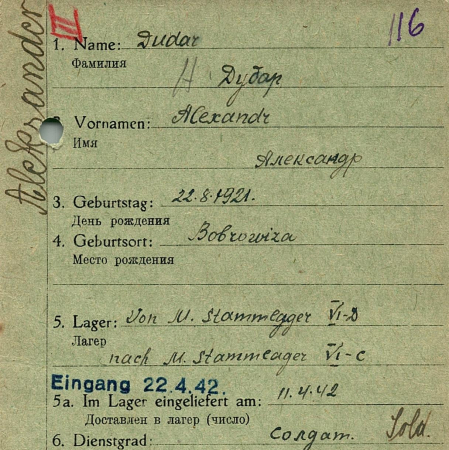 Aleksander
III
116
1. Name: Dudar
Фамилия
Н Дубар
2. Vornamen: Alexandr
Имя
Александр
3. Geburtstag: 22.8.1921.
День рождения
4. Geburtsort: Bobrowiza
Место рождения
5. Lager: Von M. Stammlegger VI-D
Лагер
nach M. Stammeager VI-C
Eingang 22.4.42.
5a. Im Lager eingeliefert am: 11.4.42
Доставлен в лагер (число)
6. Dienstgrad: солдат. Sold.